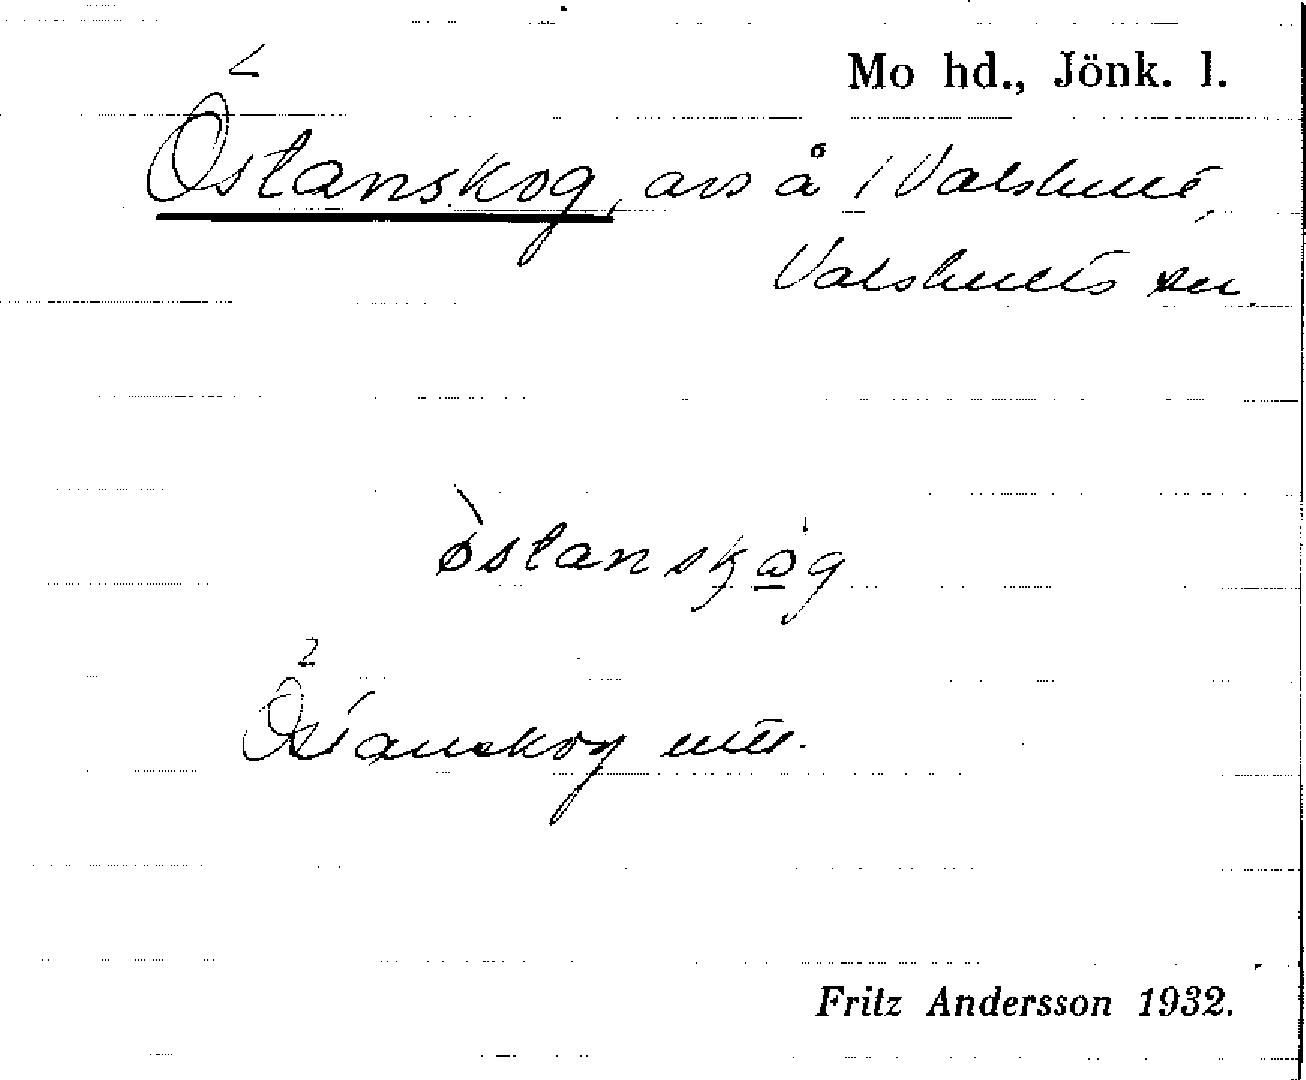 Mo hd., Jönk. l.
Östanskog, avs å 1 Valshult,
Valshults sn.
östanskog
2
Östanskog
Fritz Andersson 1932.